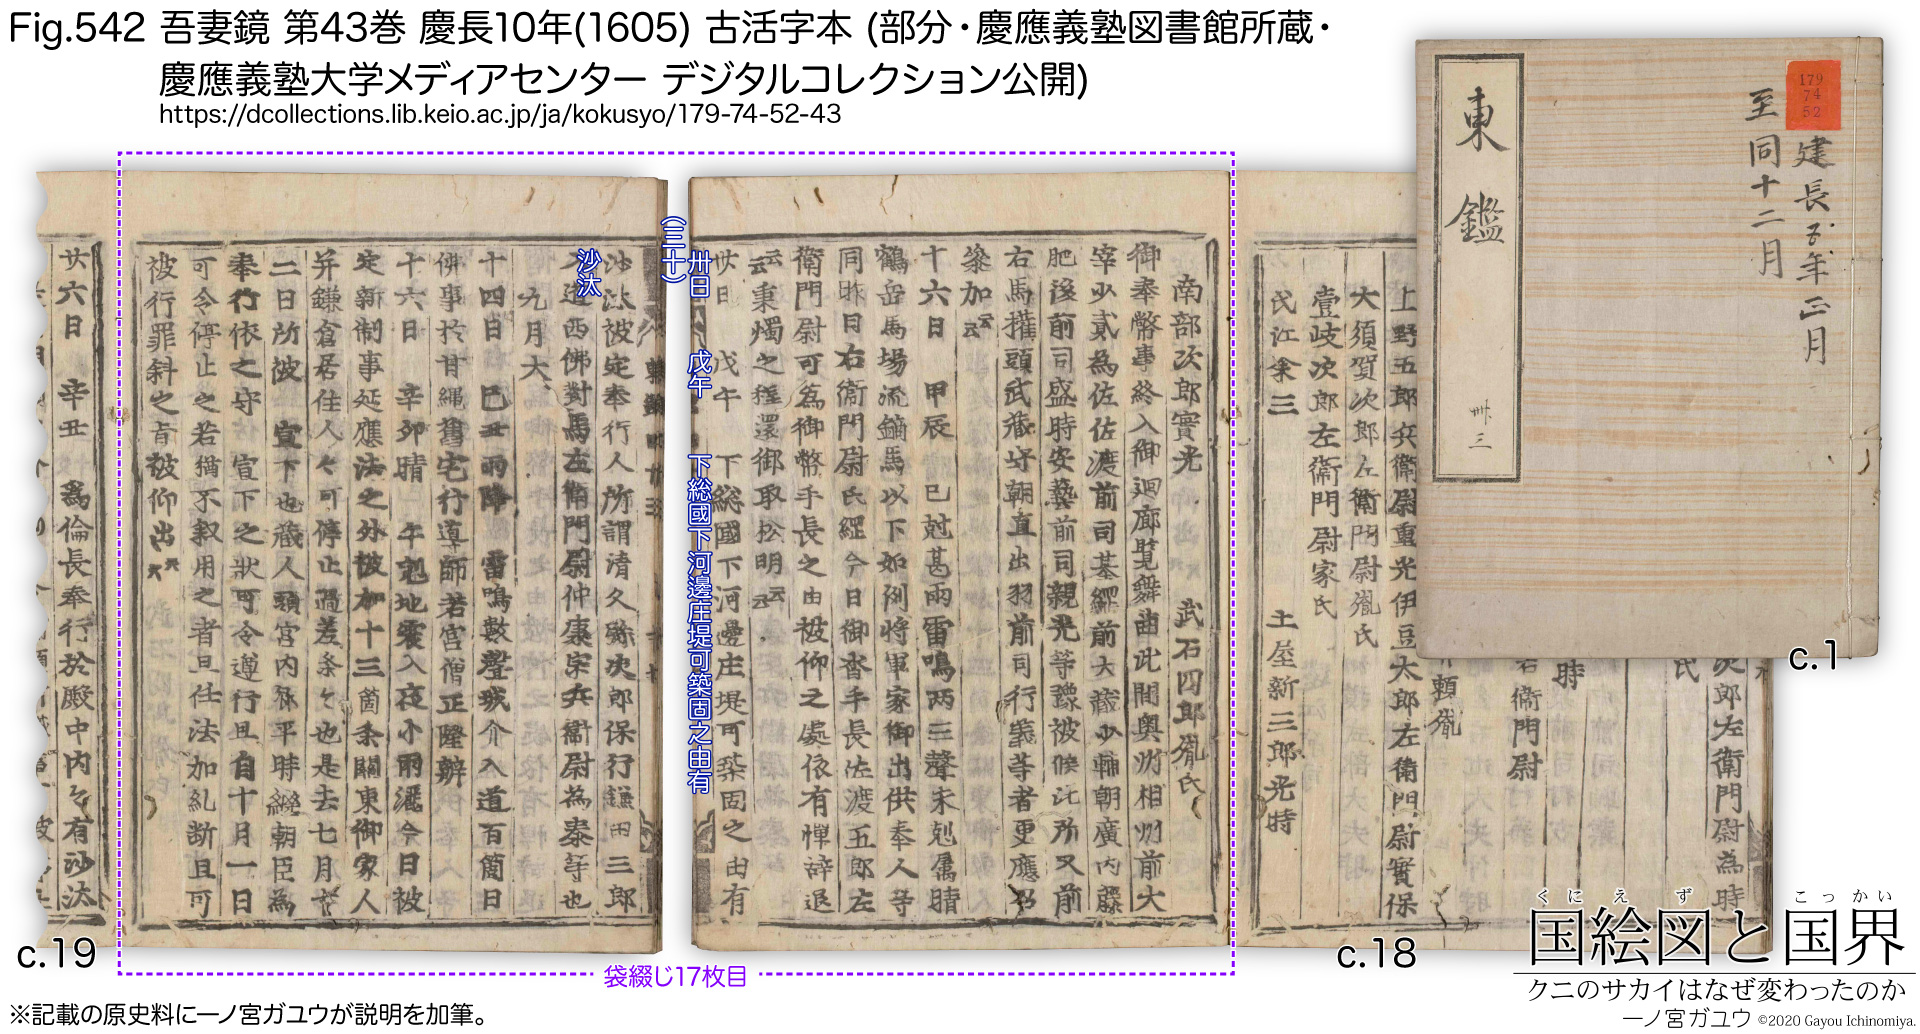 Fig.542 吾妻鏡 第43巻 慶長10年(1605) 古活字本 (部分・慶應義塾図書館所蔵・
慶應義塾大学メディアセンター デジタルコレクション公開)
https://dcollections.lib.keio.ac.jp/ja/kokusyo/179-74-52-43
179
74
52
建長五年正月
至同十二月
東鑑
卌三
c.1
上野五郎兵衞尉重光伊豆太郎左衞門尉實保
大須賀次郎左衞門尉胤氏
壹岐次郎左衞門尉家氏
氏江余三 土屋新三郎光時
次郎左衞門尉為時
氏
時
衞門尉
頼胤
c.18
南部次郎實光 武石四郎胤氏
御奉幣事終入御廻廊覧舞曲此間奥州相州前大
宰少貳為佐佐渡前司基綱前大藏少輔朝廣内藤
肥後前司盛時安藝前司親光等豫被候此所又前
右馬權頭武藏守朝直出羽前司行義等者更應召
參加云云
十六日 甲辰 巳尅甚雨雷鳴両三聲未尅属晴
鶴岳馬場流鏑馬以下如例将軍家御出供奉人等
同昨日右衞門尉氏經今日御沓手長佐渡五郎左
衞門尉可為御幣手長之由被仰之處依有憚辞退
云云秉燭之程還御取松明云云
廿日 戊午 下総國下河邊庄堤可築固之由有
卅日 戊午 下総國下河邊庄堤可築固之由有
(三十)
沙汰被定奉行人所謂清久弥次郎保行鎌田三郎
沙汰
入道西佛對馬左衞門尉仲康宗兵衞尉為泰等也
九月大
十四日 己丑雨降 雷鳴鼓聲城介入道百箇日
佛事於甘縄舊宅行導師若宮僧正隆辨
十六日 辛卯晴 午尅地震入夜小雨灑今日被
定新制事延應法之外被加十三箇条關東御家人
并鎌倉居住人々可停止過差条々也是去七月十
二日所被宣下也藏人頭宮内卿平時継朝臣為
奉行依之守宣下之状可令遵行且自十月一日
可令停止之若猶不叙用之者且任法加糺断且可
被行罪斜之旨被仰出云云
廿六日 辛丑 為倫長奉行於殿中内々有沙汰
c.19
袋綴じ17枚目
※記載の原史料に一ノ宮ガユウが説明を加筆。
くにえず こっかい
国絵図と国界
クニのサカイはなぜ変わったのか
一ノ宮ガユウ ©2020 Gayou Ichinomiya.